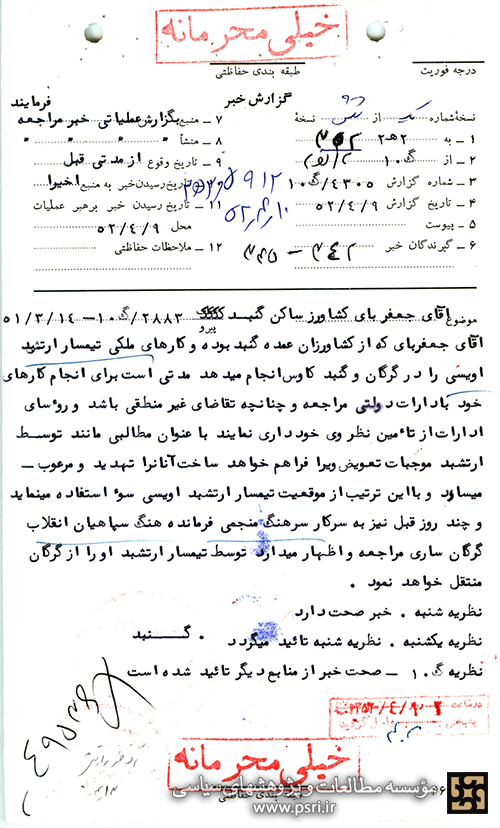 خیلی محرمانه
طبقه بندی حفاظتی
درجه فوریت
گزارش خبر
فرمایند
نسخهٔ شماره یک از شش نسخهٔ
۱ – به ۲هـ۳
۲ – از گ ۱۰
۳ – شماره گزارش ۴۳۰۵/گ ۱۰
۴ – تاریخ گزارش ۵۲/۴/۹
۵ – پیوست
۶ – گیرندگان خبر
۷ – منبع بگزارش عملیاتی خبر مراجعه
۸ – منشأ " " " "
۹ – تاریخ وقوع از مدتی قبل
تاریخ رسیدن خبر به منبع اخیرا
۱۱ – تاریخ رسیدن خبر برهبر عملیات
محل ۵۲/۴/۹
۱۲ – ملاحظات حفاظتی
موضوع آقای جعفربای کشاورز ساکن گنبد پیرو ۲۸۸۳/گ ۱۰ – ۵۱/۳/۱۴
آقای جعفربای که از کشاورزان عمده گنبد بوده و کارهای ملکی تیمسار ارتشبد
اویسی را در گرگان و گنبد کاوس انجام میدهد مدتی است برای انجام کارهای
خود بادارات دولتی مراجعه و چنانچه تقاضای غیر منطقی باشد و روسای
ادارات از تائمین نظر وی خود داری نمایند با عنوان مطالبی مانند توسط
ارتشبد موجبات تعویض ویرا فراهم خواهد ساخت آنانرا تهدید و مرعوب –
میسازد و با این ترتیب از موقعیت تیمسار ارتشبد اویسی سوء استفاده مینماید
و چند روز قبل نیز به سرکار سرهنگ منجمی فرمانده هنگ سپاهیان انقلاب
گرگان ساری مراجعه و اظهار میدارد توسط تیمسار ارتشبد او را از گرگان
منتقل خواهد نمود .
نظریه شنبه . خبر صحت دارد
نظریه یکشنبه . نظریه شنبه تائید میگردد . گنبد
نظریه گ ۱۰ – صحت خبر از منابع دیگر تائید شده است
خیلی محرمانه
طبقه بندی حفاظتی
مؤسسه مطالعات و پژوهشهای سیاسی
www.psri.ir